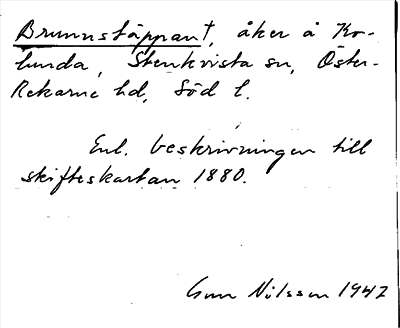 Brunnstäppan†, åker å Ko-
lunda, Stenkvista sn, Öster-
Rekarne hd, Söd l.
Enl. beskrivningen till
skifteskartan 1880.
Gun Nilsson 1947